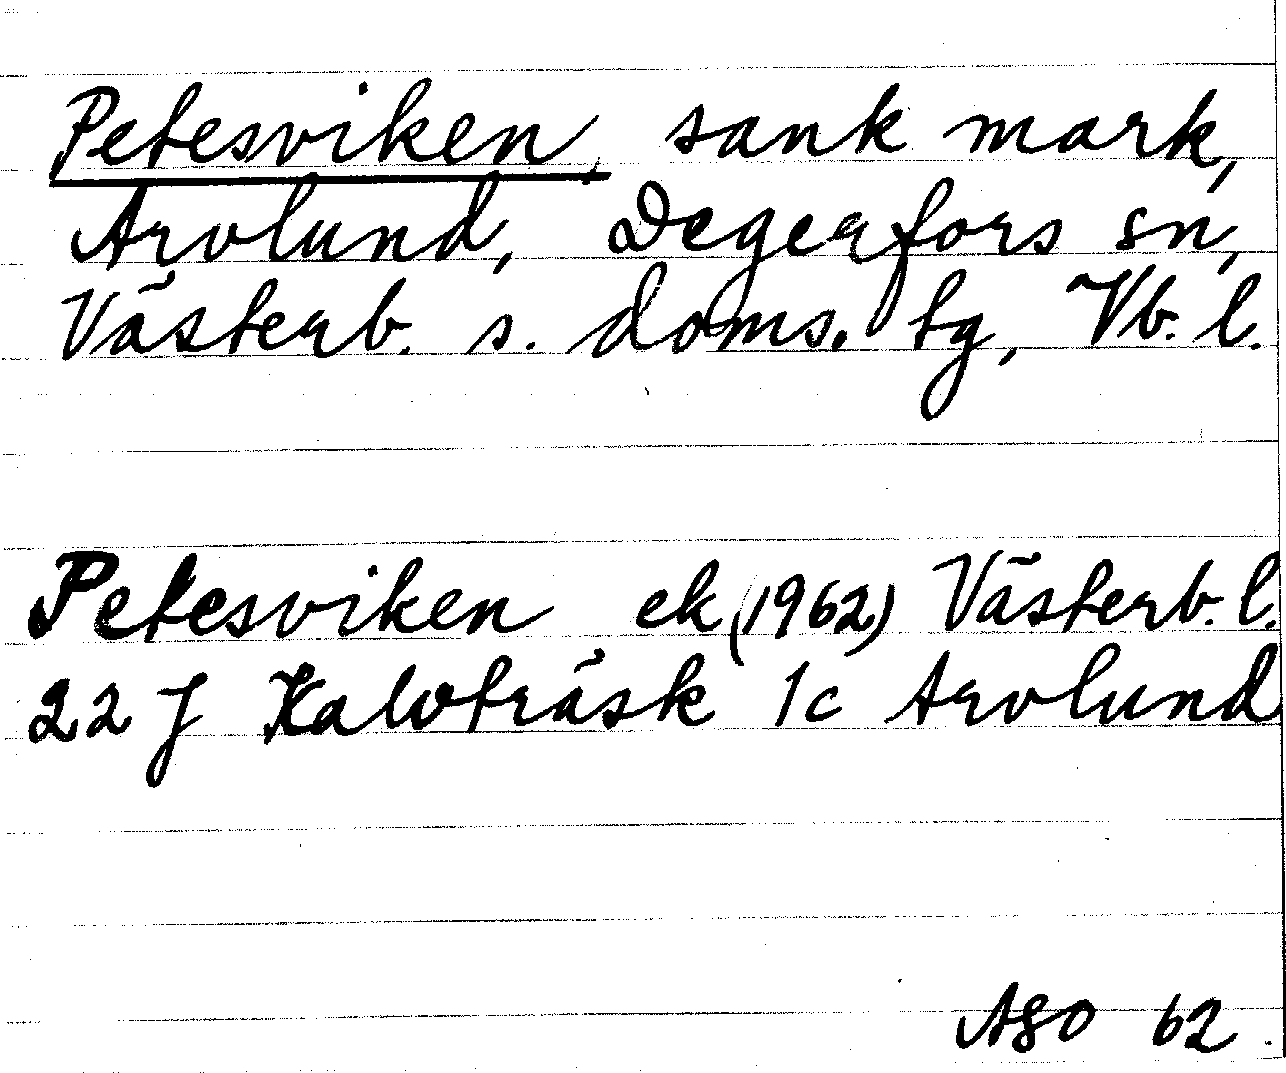 Petesviken, sank mark,
Arvlund, Degerfors sn,
Västerb. s. doms. tg, Vb. l.
Petesviken ek (1962) Västerb. l.
22 J Kalvträsk 1c Arvlund
ASO 62.